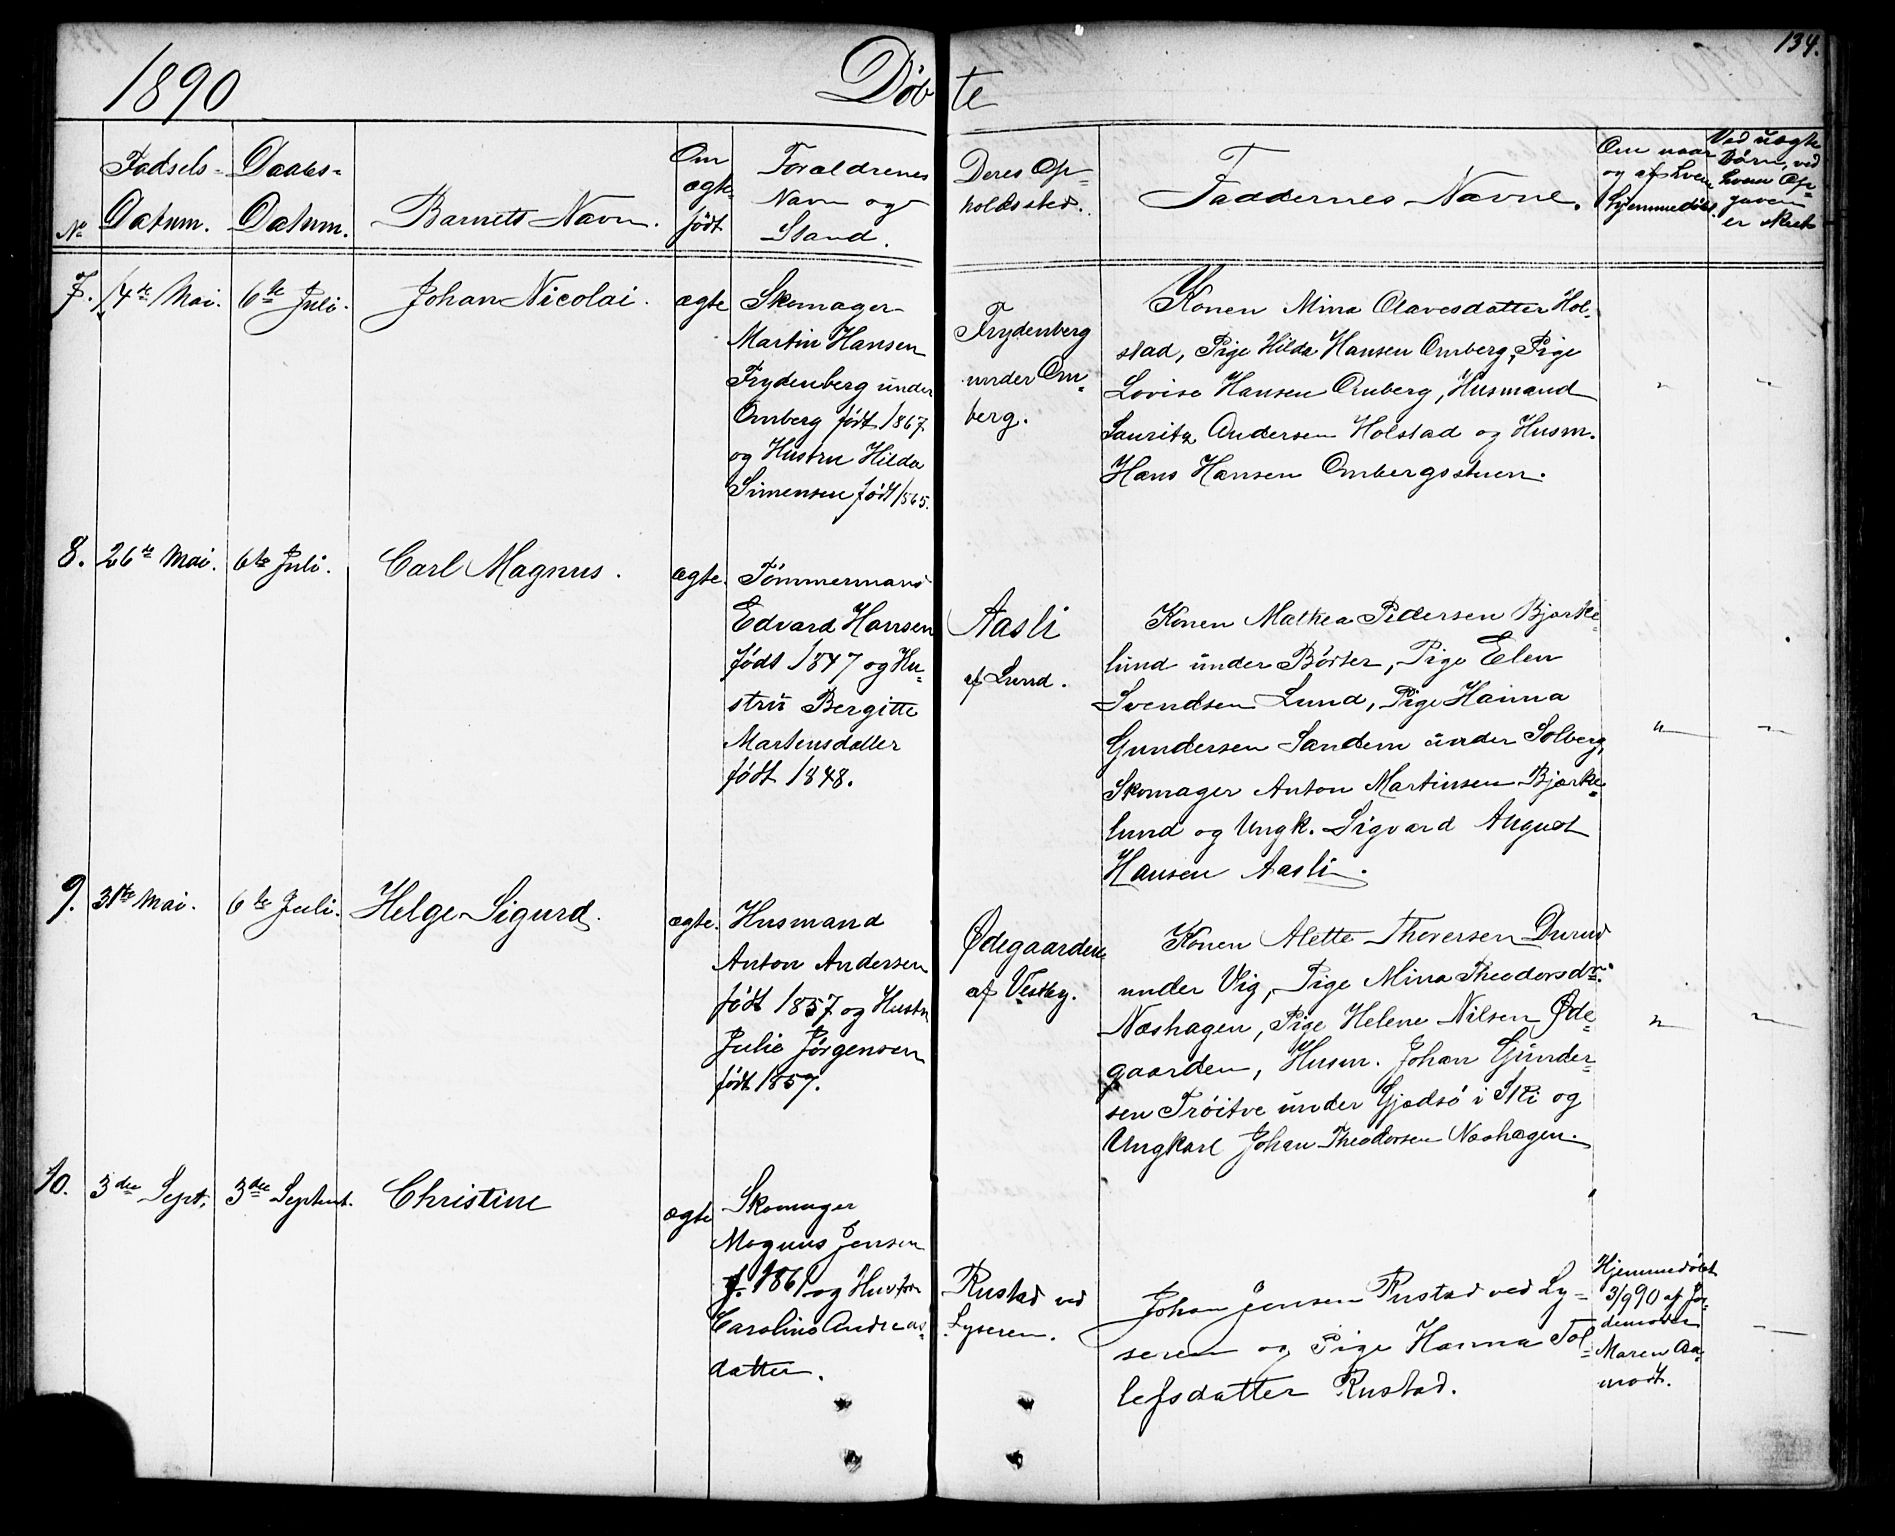 134.
1890
Døbte
No
Fødsels-
Datum.
Daabs-
Datum.
Barnets Navn.
Om
ægte
født
Forældrenes
Navn og
Stand.
Deres Op-
holdssted.
Faddernes Navne.
Om naar
og af hvem
hjemmedøbt.
Ved uægte
Børn, ved
hvem Op-
gaven
er skeet
7.
14de Mai.
6te Juli.
Johan Nicolai.
ægte
Skomager
Martin Hansen
Frydenberg under
Omberg født 1867
og Hustru Hilda
Simensen født 1865.
Frydenberg
under Om-
berg.
Konen Mina Olavesdatter Hol-
stad, Pige Hilda Hansen Omberg, Pige
Lovise Hansen Omberg, Husmand
Lauritz Andersen Holstad og Husm.
Hans Hansen Ombergsstuen.
"
"
8.
26de Mai.
6te Juli.
Carl Magnus.
ægte.
Tømmermand
Edvard Hansen
født 1847 og Hu-
stru Bergitte
Martensdatter
født 1848.
Aasli
af Lund.
Konen Mathea Pedersen Bjørke-
lund under Børter, Pige Elen
Svendsen Lund, Pige Hanna
Gundersen Sandem under Solberg,
Skomager Anton Martinsen Bjørke-
lund og Ungk. Sigvard August
Hansen Aasli.
"
"
9.
31te Mai.
6te Juli.
Helge Sigurd.
ægte.
Husmand
Anton Andersen
født 1857 og Hustru
Julie Jørgensen
født 1857.
Ødegaarden
af Vestby.
Konen Alette Thoresen Durud
under Vig, Pige Mina Theodorsdr.
Næshagen, Pige Helene Nilsen Øde-
gaarden, Husm. Johan Gunder-
sen Trøitve under Gjedsø i Ski og
Ungkarl Johan Theodorsen Næshagen.
"
"
10.
3die Sept.
3die Septemt.
Christine
ægte
Skomager
Magnus Jensen
f. 1861 og Hustru
Caroline Andreas-
datter.
Rustad ved
Lyseren.
Johan Jensen Rustad ved Ly-
seren og Pige Hanna Tol-
lefsdatter Rustad.
Hjemmedøbt
3/9 90 af Jor-
demoder
Maren Aa-
modt.